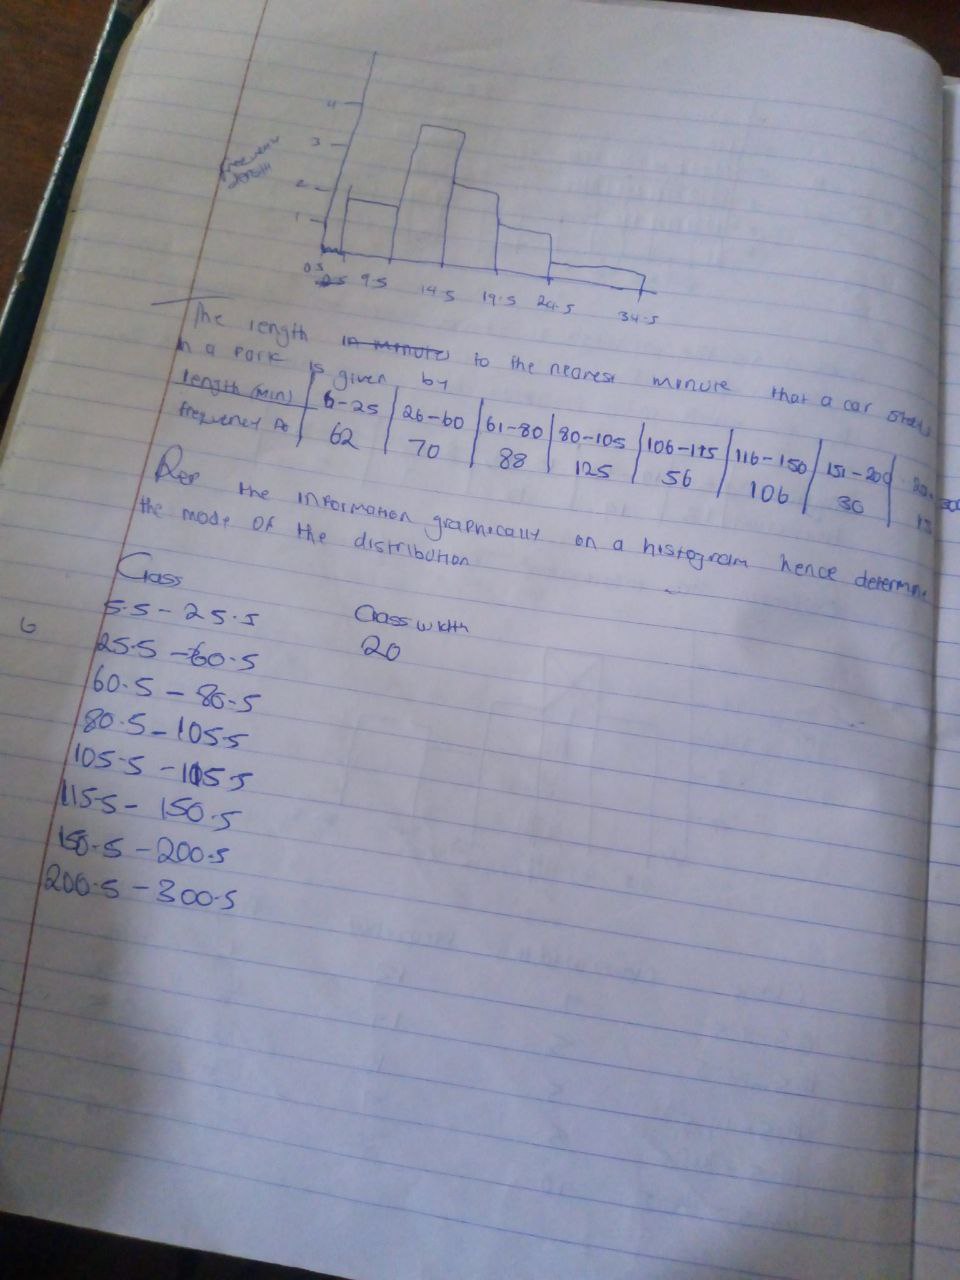 4
3
2
1
0.5
2.5 9.5 14.5 19.5 24.5 34.5
The length in minutes to the nearest minute that a car stays
in a park is given by
length (min) 6-25 26-60 61-80 80-105 106-115 116-150 151-200
frequency 62 70 88 125 56 106 30
Rep the information graphically on a histogram hence determine
the mode of the distribution
Class Class width
5.5 - 25.5 20
25.5 - 60.5
60.5 - 80.5
80.5 - 105.5
105.5 - 115.5
115.5 - 150.5
150.5 - 200.5
200.5 - 300.5